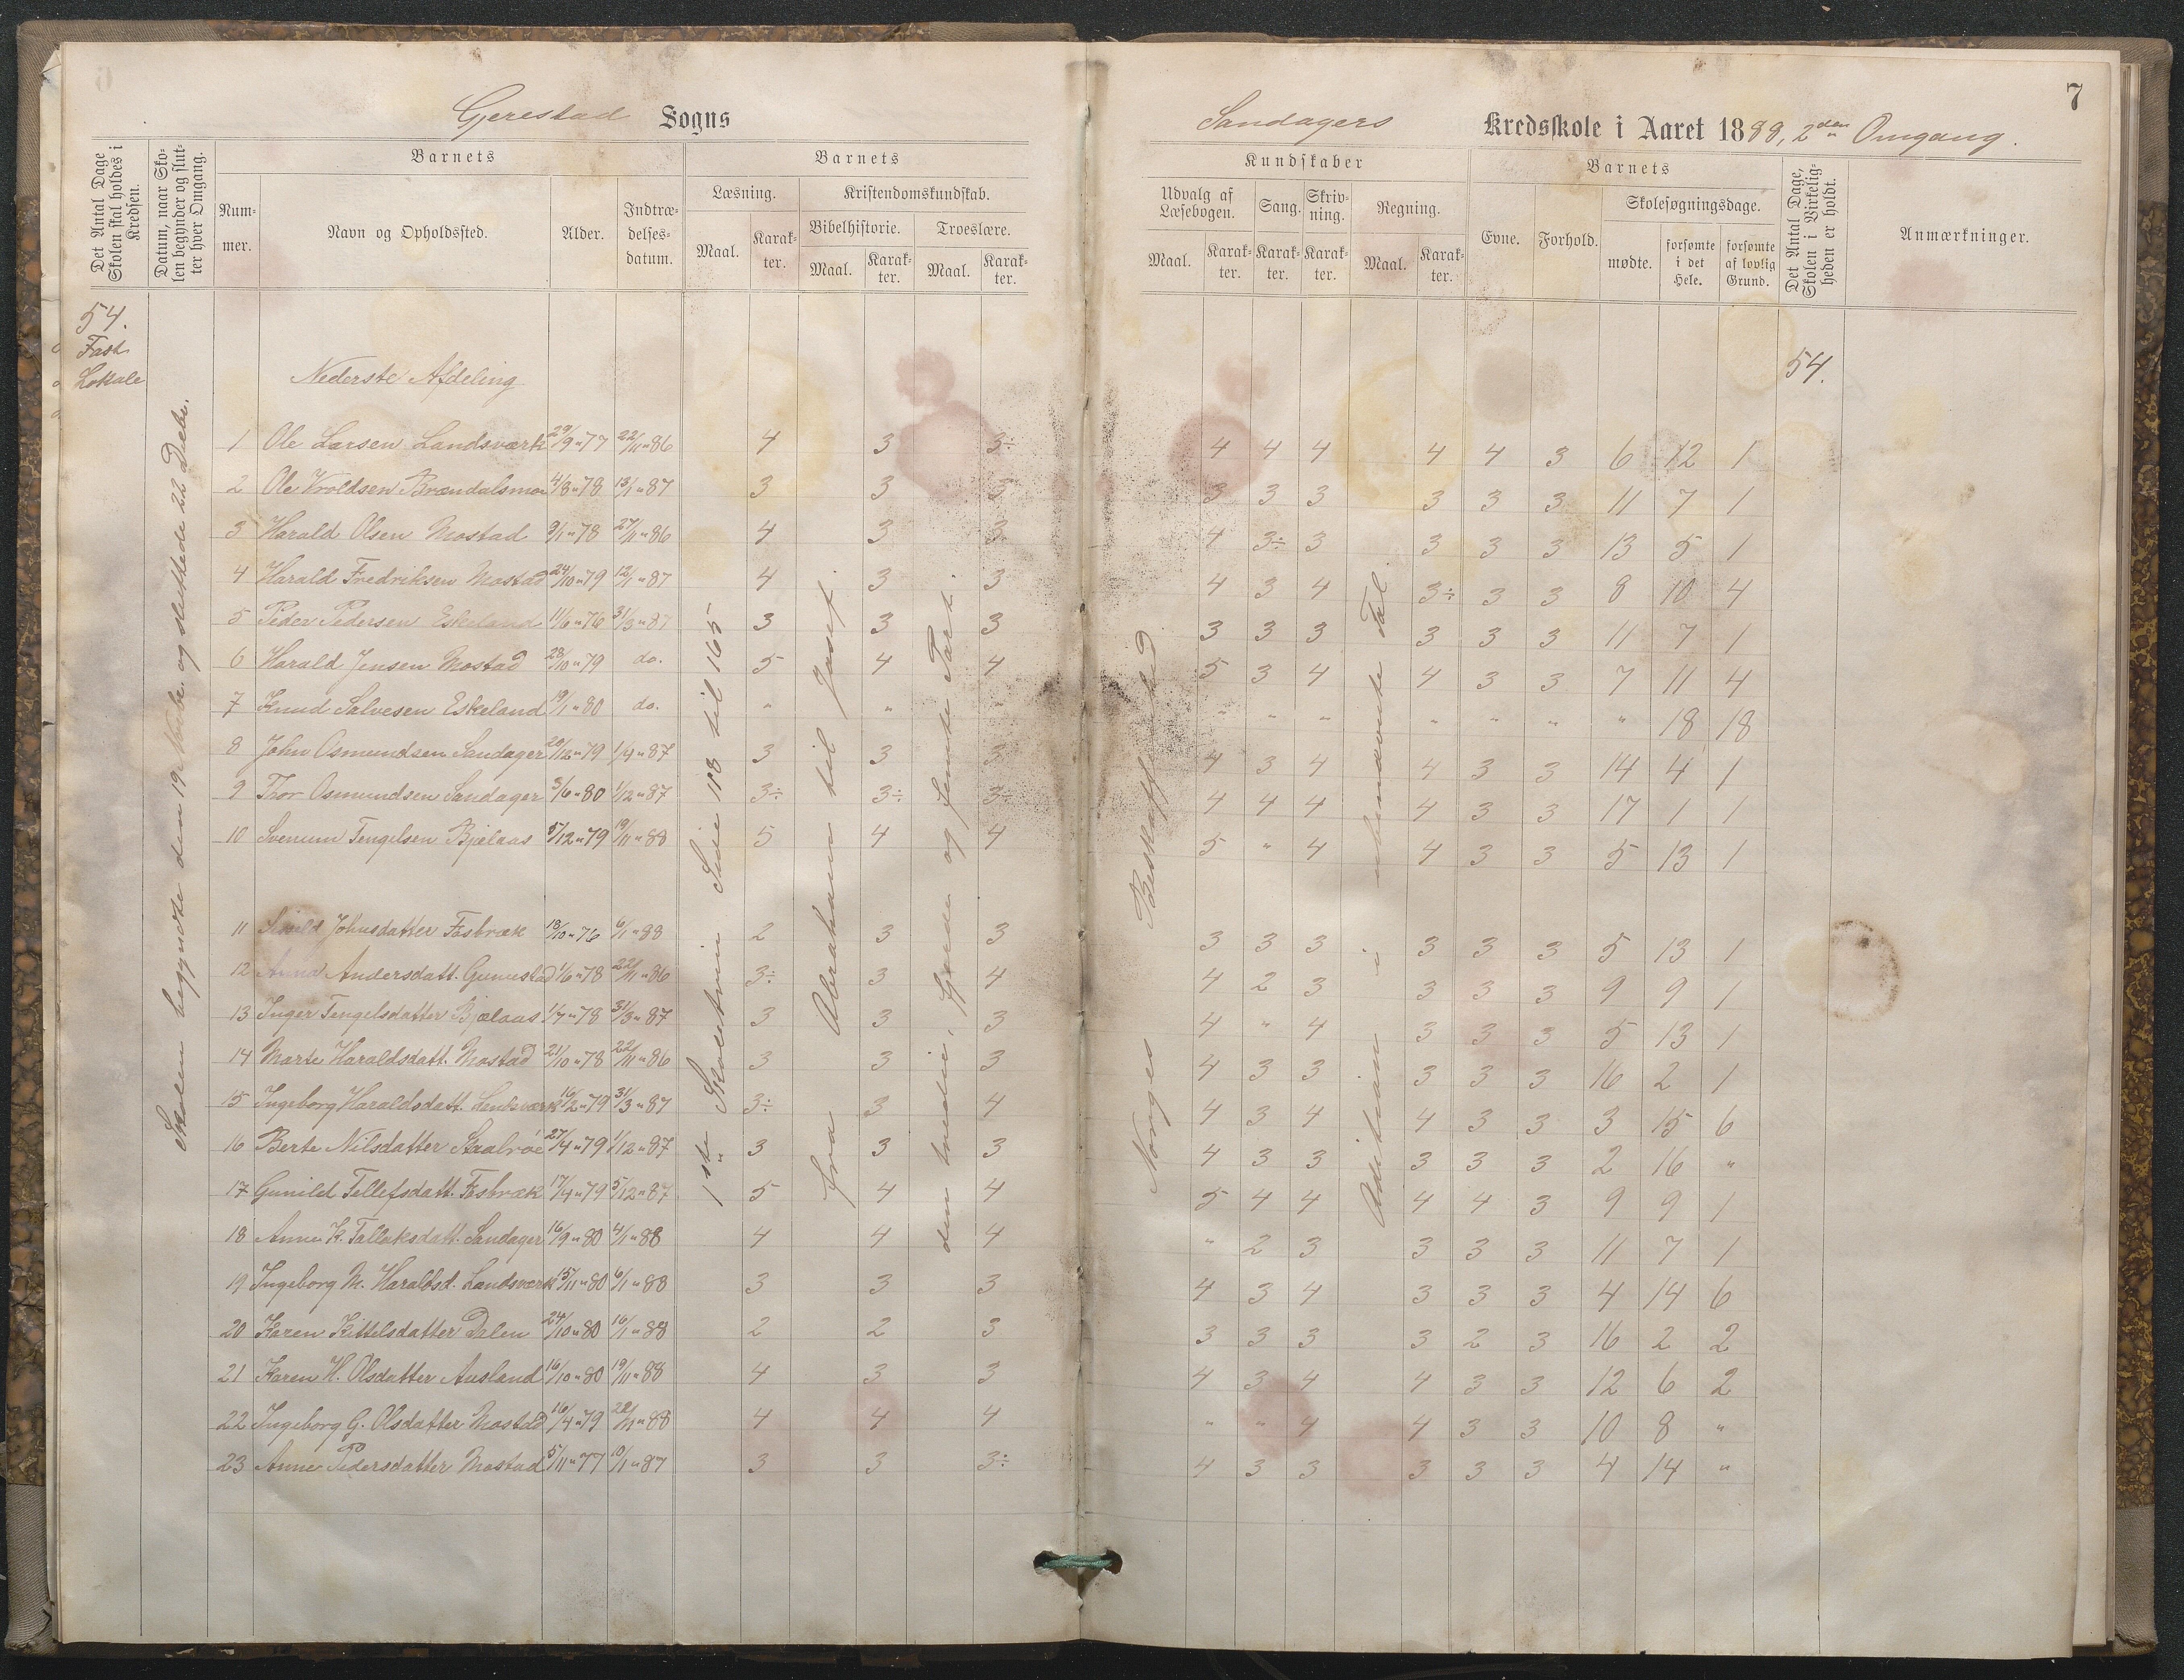 7
Gjerestad Sogns
Sandagers Kredsskole i Aaret 1888, 2den Omgang.
Det Antal Dage Skolen skal holdes i Kredsen.
Datum, naar Skolen begynder og slutter hver Omgang.
Barnets
Nummer.
Navn og Opholdssted.
Alder.
Indtrædelsesdatum.
Barnets
Læsning.
Maal.
Karakter.
Kristendomskundskab.
Bibelhistorie.
Maal.
Karakter.
Troeslære.
Maal.
Karakter.
Kundskaber
Udvalg af Læsebogen.
Maal.
Karakter.
Sang.
Karakter.
Skrivning.
Karakter.
Regning.
Maal.
Karakter.
Barnets
Evne.
Forhold.
Skolesøgningsdage.
mødte.
forsømte i det Hele.
forsømte af lovlig Grund.
Det Antal Dage, Skolen i Virkeligheden er holdt.
Anmærkninger.
54.
Fast
Lokale
Nederste Afdeling
54.
Skolen begyndte den 19 Novbe. og sluttede 22 Decbe.
1ste Skoletrin Side 118 til 165
Fra Abraham til Josef.
den tredie, fjerde og femte Part.
Norges Beskaffenhed
Addition i ubenævnte Tal.
1 Ole Larsen Landsværk 29/9 " 77 22/11 " 86 4 3 3÷ 4 4 4 4 4 3 6 12 1
2 Ole Vroldsen Brændalsmo 4/8 " 78 13/1 " 87 3 3 3 3 3 3 3 3 3 11 7 1
3 Harald Olsen Mostad 9/1 " 78 27/11 " 86 4 3 3 4 3÷ 3 3 3 3 13 5 1
4 Harald Fredriksen Mostad 24/10 " 79 12/1 " 87 4 3 3 4 3 4 3÷ 3 3 8 10 4
5 Peder Pedersen Eskeland 11/6 " 76 31/3 " 87 3 3 3 3 3 3 3 3 3 11 7 1
6 Harald Jensen Mostad 28/10 " 79 do. 5 4 4 5 3 4 4 3 3 7 11 4
7 Knud Salvesen Eskeland 19/1 " 80 do. " " " " " " " " " " 18 18
8 John Osmundsen Sandager 20/12 " 79 1/4 " 87 3 3 3 4 3 4 4 3 3 14 4 1
9 Thor Osmundsen Sandager 3/6 " 80 1/12 " 87 3÷ 3÷ 3÷ 4 4 4 4 3 3 17 1 1
10 Svenum Tengelsen Bjelaas 5/12 " 79 19/11 " 88 5 4 4 5 " 4 4 3 3 5 13 1
11 Johnsdatter Fosbræk 18/10 " 76 6/1 " 88 2 3 3 3 3 3 3 3 3 5 13 1
12 Anna Andersdatt. 1/6 " 78 22/11 " 86 3÷ 3 4 4 2 3 3 3 3 9 9 1
13 Inger Tengelsdatter Bjælaas 1/7 " 78 31/3 " 87 3 3 3 4 " 4 3 3 3 5 13 1
14 Marte Haraldsdatt. Mostad 21/10 " 78 22/11 " 86 3 3 3 4 3 3 3 3 3 16 2 1
15 Ingeborg Haraldsdatt. Landsværk 16/2 " 79 31/3 " 87 3÷ 3 4 4 3 4 4 3 3 3 15 6
16 Berte Nilsdatter Skaalroe 27/4 " 79 1/12 " 87 3 3 3 4 3 3 3 3 3 2 16 "
17 Gunild Tellefsdatt. Fosbræk 17/4 " 79 5/12 " 87 5 4 4 5 4 4 4 4 3 9 9 1
18 Anne K. Tallaksdatt. Sandager 16/9 " 80 4/1 " 88 4 4 4 " 2 3 3 3 3 11 7 1
19 Ingeborg M. Haraldsd. Landsværk 15/11 " 80 6/1 " 88 3 3 3 4 3 4 3 3 3 4 14 6
20 Karen Kittelsdatter Dalen 24/10 " 80 16/1 " 88 2 2 3 3 3 3 3 2 3 16 2 2
21 Karen H. Olsdatter Ausland 16/10 " 80 19/11 " 88 4 3 3 4 3 4 4 3 3 12 6 2
22 Ingeborg G. Olsdatter Mostad 16/4 " 79 22/11 " 88 4 4 4 " " 4 4 3 3 10 8 "
23 Anne Pedersdatter Mostad 5/11 " 77 10/1 " 87 3 3 3÷ 4 3 3 3 3 3 4 14 "